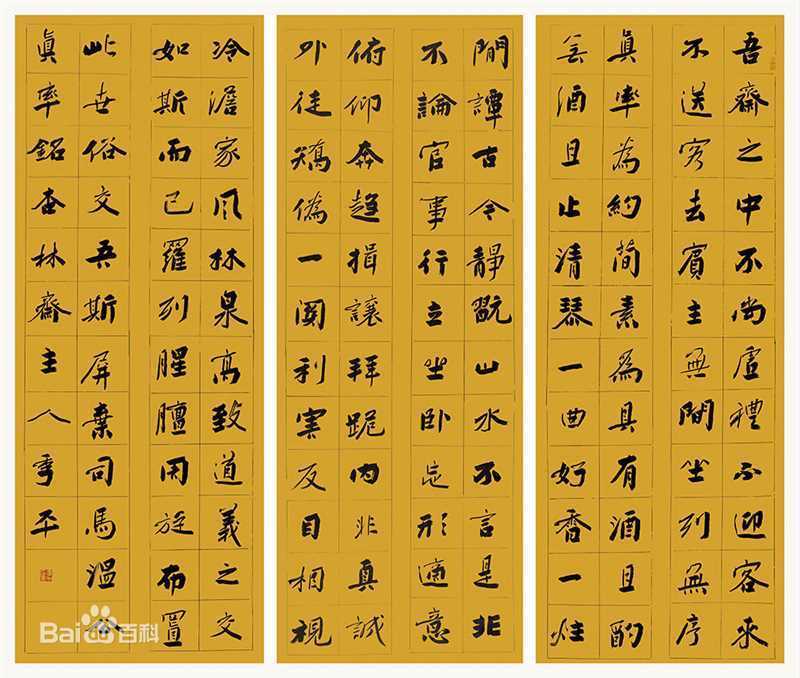 吾齋之中不尚虛禮不迎客來
不送客去賓主無間坐列無序
真率為約簡素為具有酒且酌
無酒且止清琴一曲好香一炷
閒譚古今靜翫山水不言是非
不論官事行立坐卧忘形適意
俯仰奔趨揖讓拜跪內非真誠
外徒矯偽一關利害反目相視
冷澹家風林泉高致道義之交
如斯而已羅列腥膻周旋布置
此世俗交吾斯屏棄司馬溫公
真率銘杏林齋主人季平
Baidu百科